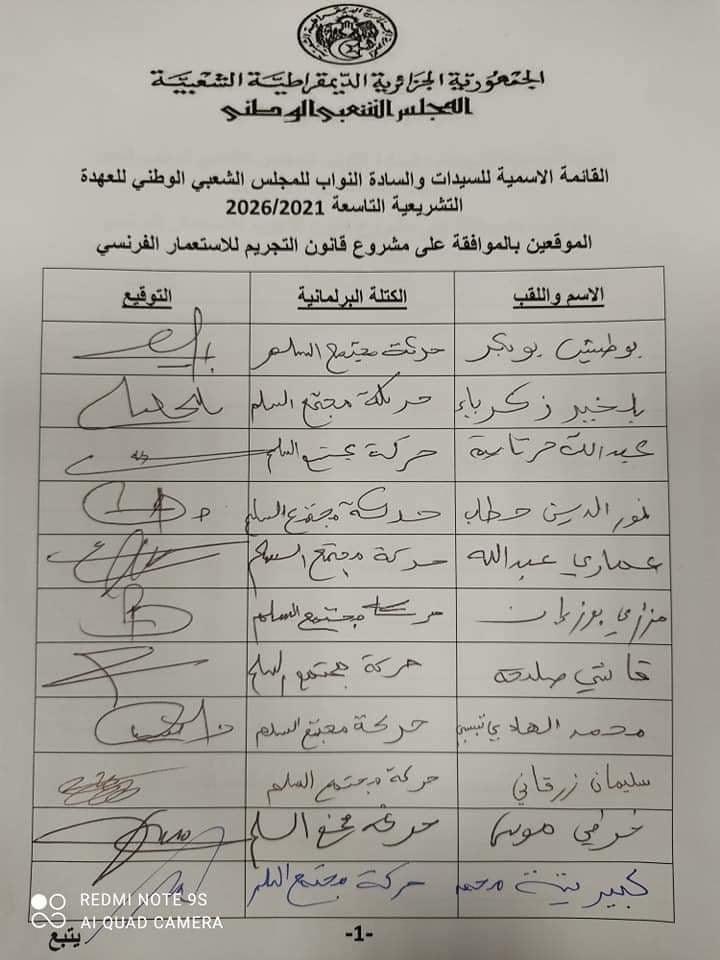 الجمهورية الجزائرية الديمقراطية الشعبية
المجلس الشعبي الوطني
القائمة الاسمية للسيدات والسادة النواب للمجلس الشعبي الوطني للعهدة
التشريعية التاسعة 2026/2021
الموقعين بالموافقة على مشروع قانون التجريم للاستعمار الفرنسي
الاسم واللقب الكتلة البرلمانية التوقيع
حركة مجتمع السلم
بلخير زكرياء حركة مجتمع السلم
عبد الله حركة مجتمع السلم
نور الدين حطاب حركة مجتمع السلم
عماري عبد الله حركة مجتمع السلم
حركة مجتمع السلم
حركة مجتمع السلم
محمد الهادي تبسي حركة مجتمع السلم
سليمان زرقاني حركة مجتمع السلم
حركة مجتمع السلم
محمد حركة مجتمع السلم
-1-
يتبع
REDMI NOTE 9S
AI QUAD CAMERA